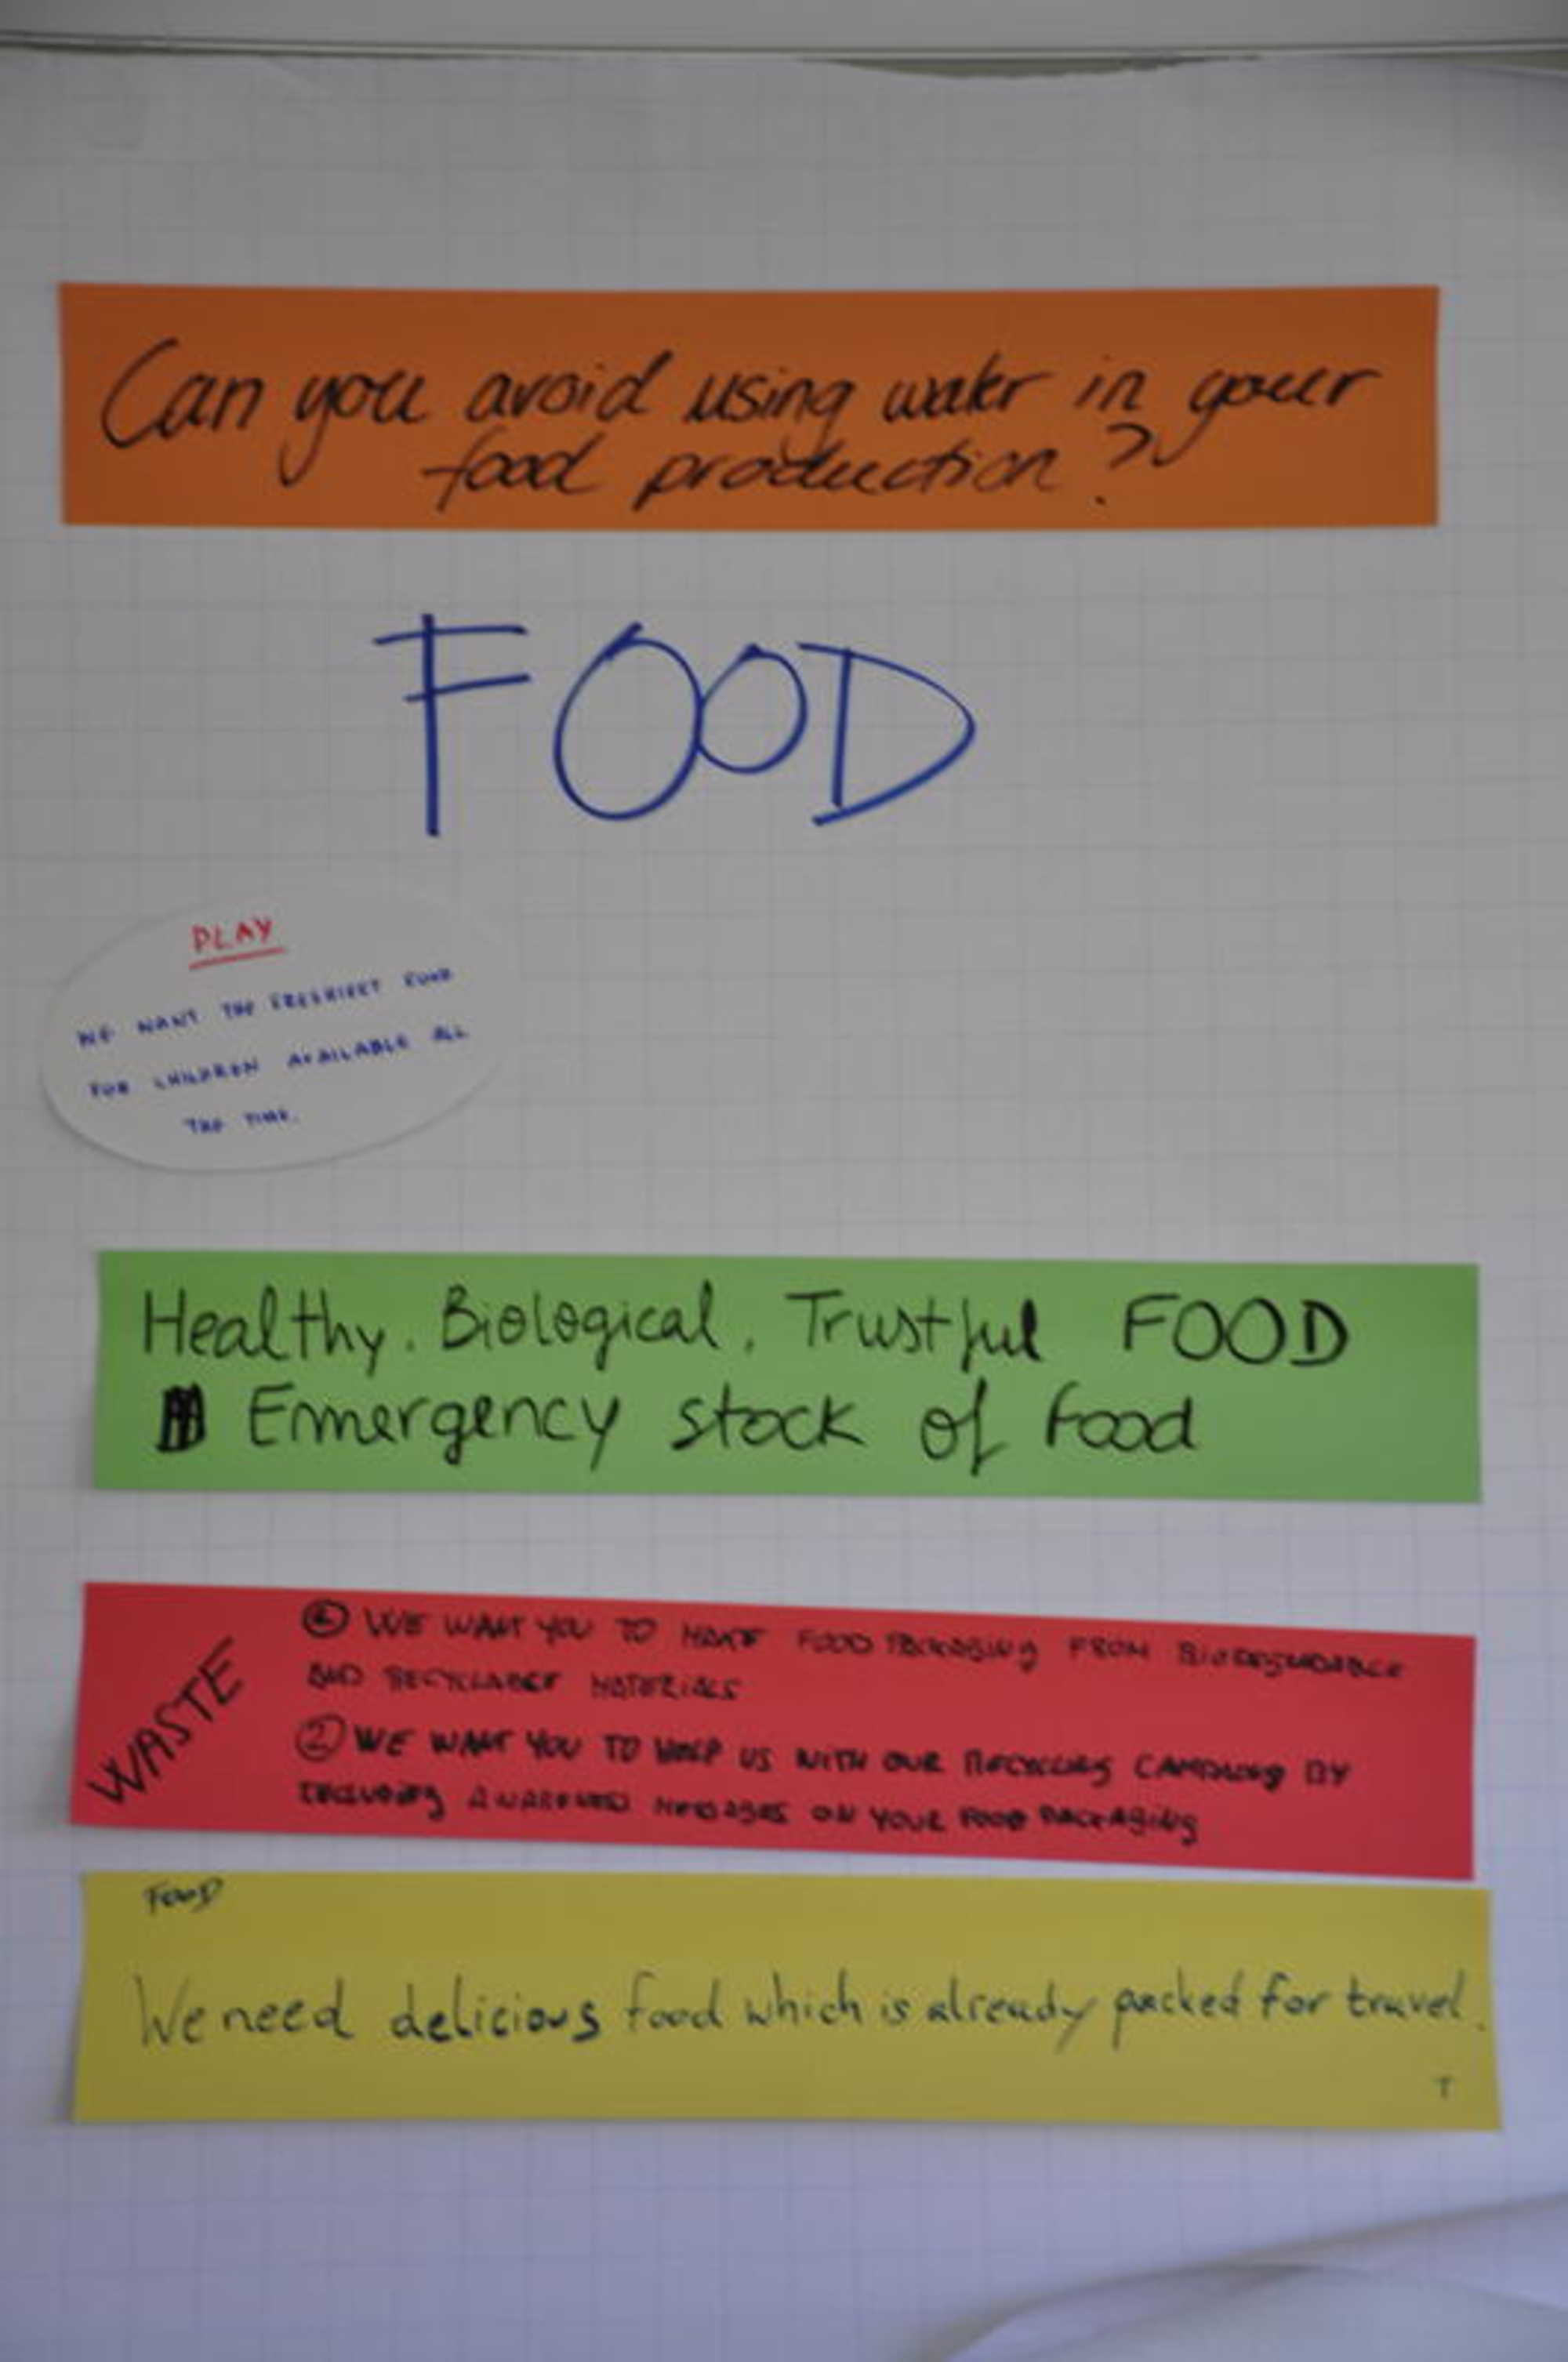 Can you avoid using water in your
food production?
FOOD
PLAY
WE WANT THE FRESHIEST FOOD
FOR CHILDREN AVAILABLE ALL
THE TIME.
Healthy. Biological, Trustful FOOD
Emergency stock of food
WASTE
① WE WANT YOU TO MAKE FOOD PACKAGING FROM BIODEGRADABLE
AND RECYCLABLE MATERIALS
② WE WANT YOU TO HELP US WITH OUR RECYCLING CAMPAIGN BY
INCLUDING AWARENESS MESSAGES ON YOUR FOOD PACKAGING
FOOD
We need delicious food which is already packed for travel.
T